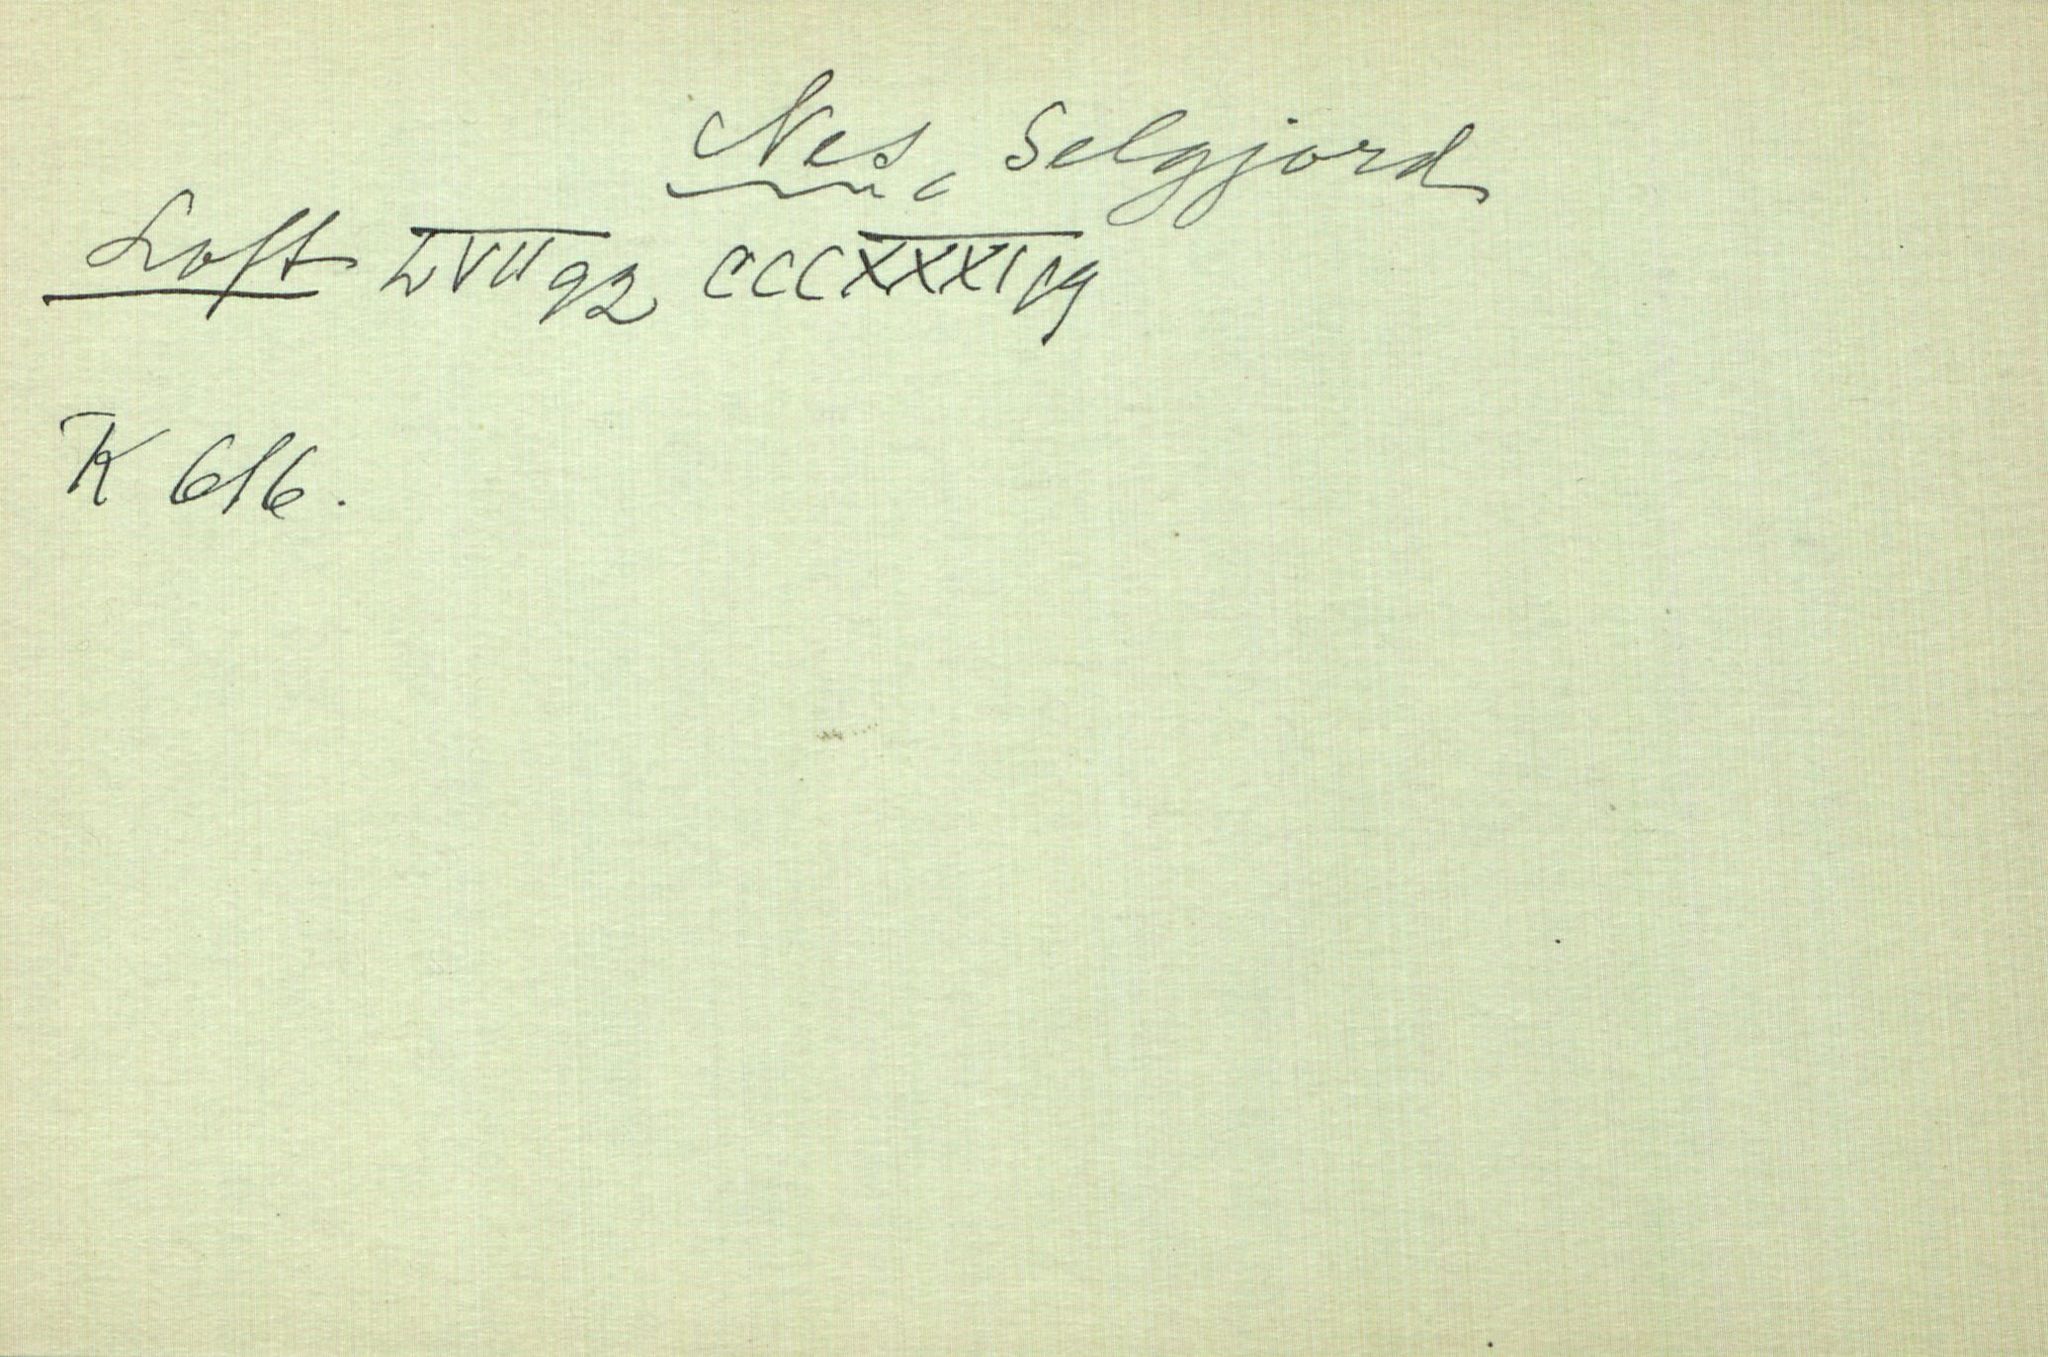 Nes, Selgjord
Loft LVII 92 CCCXXXI 19
K 616.